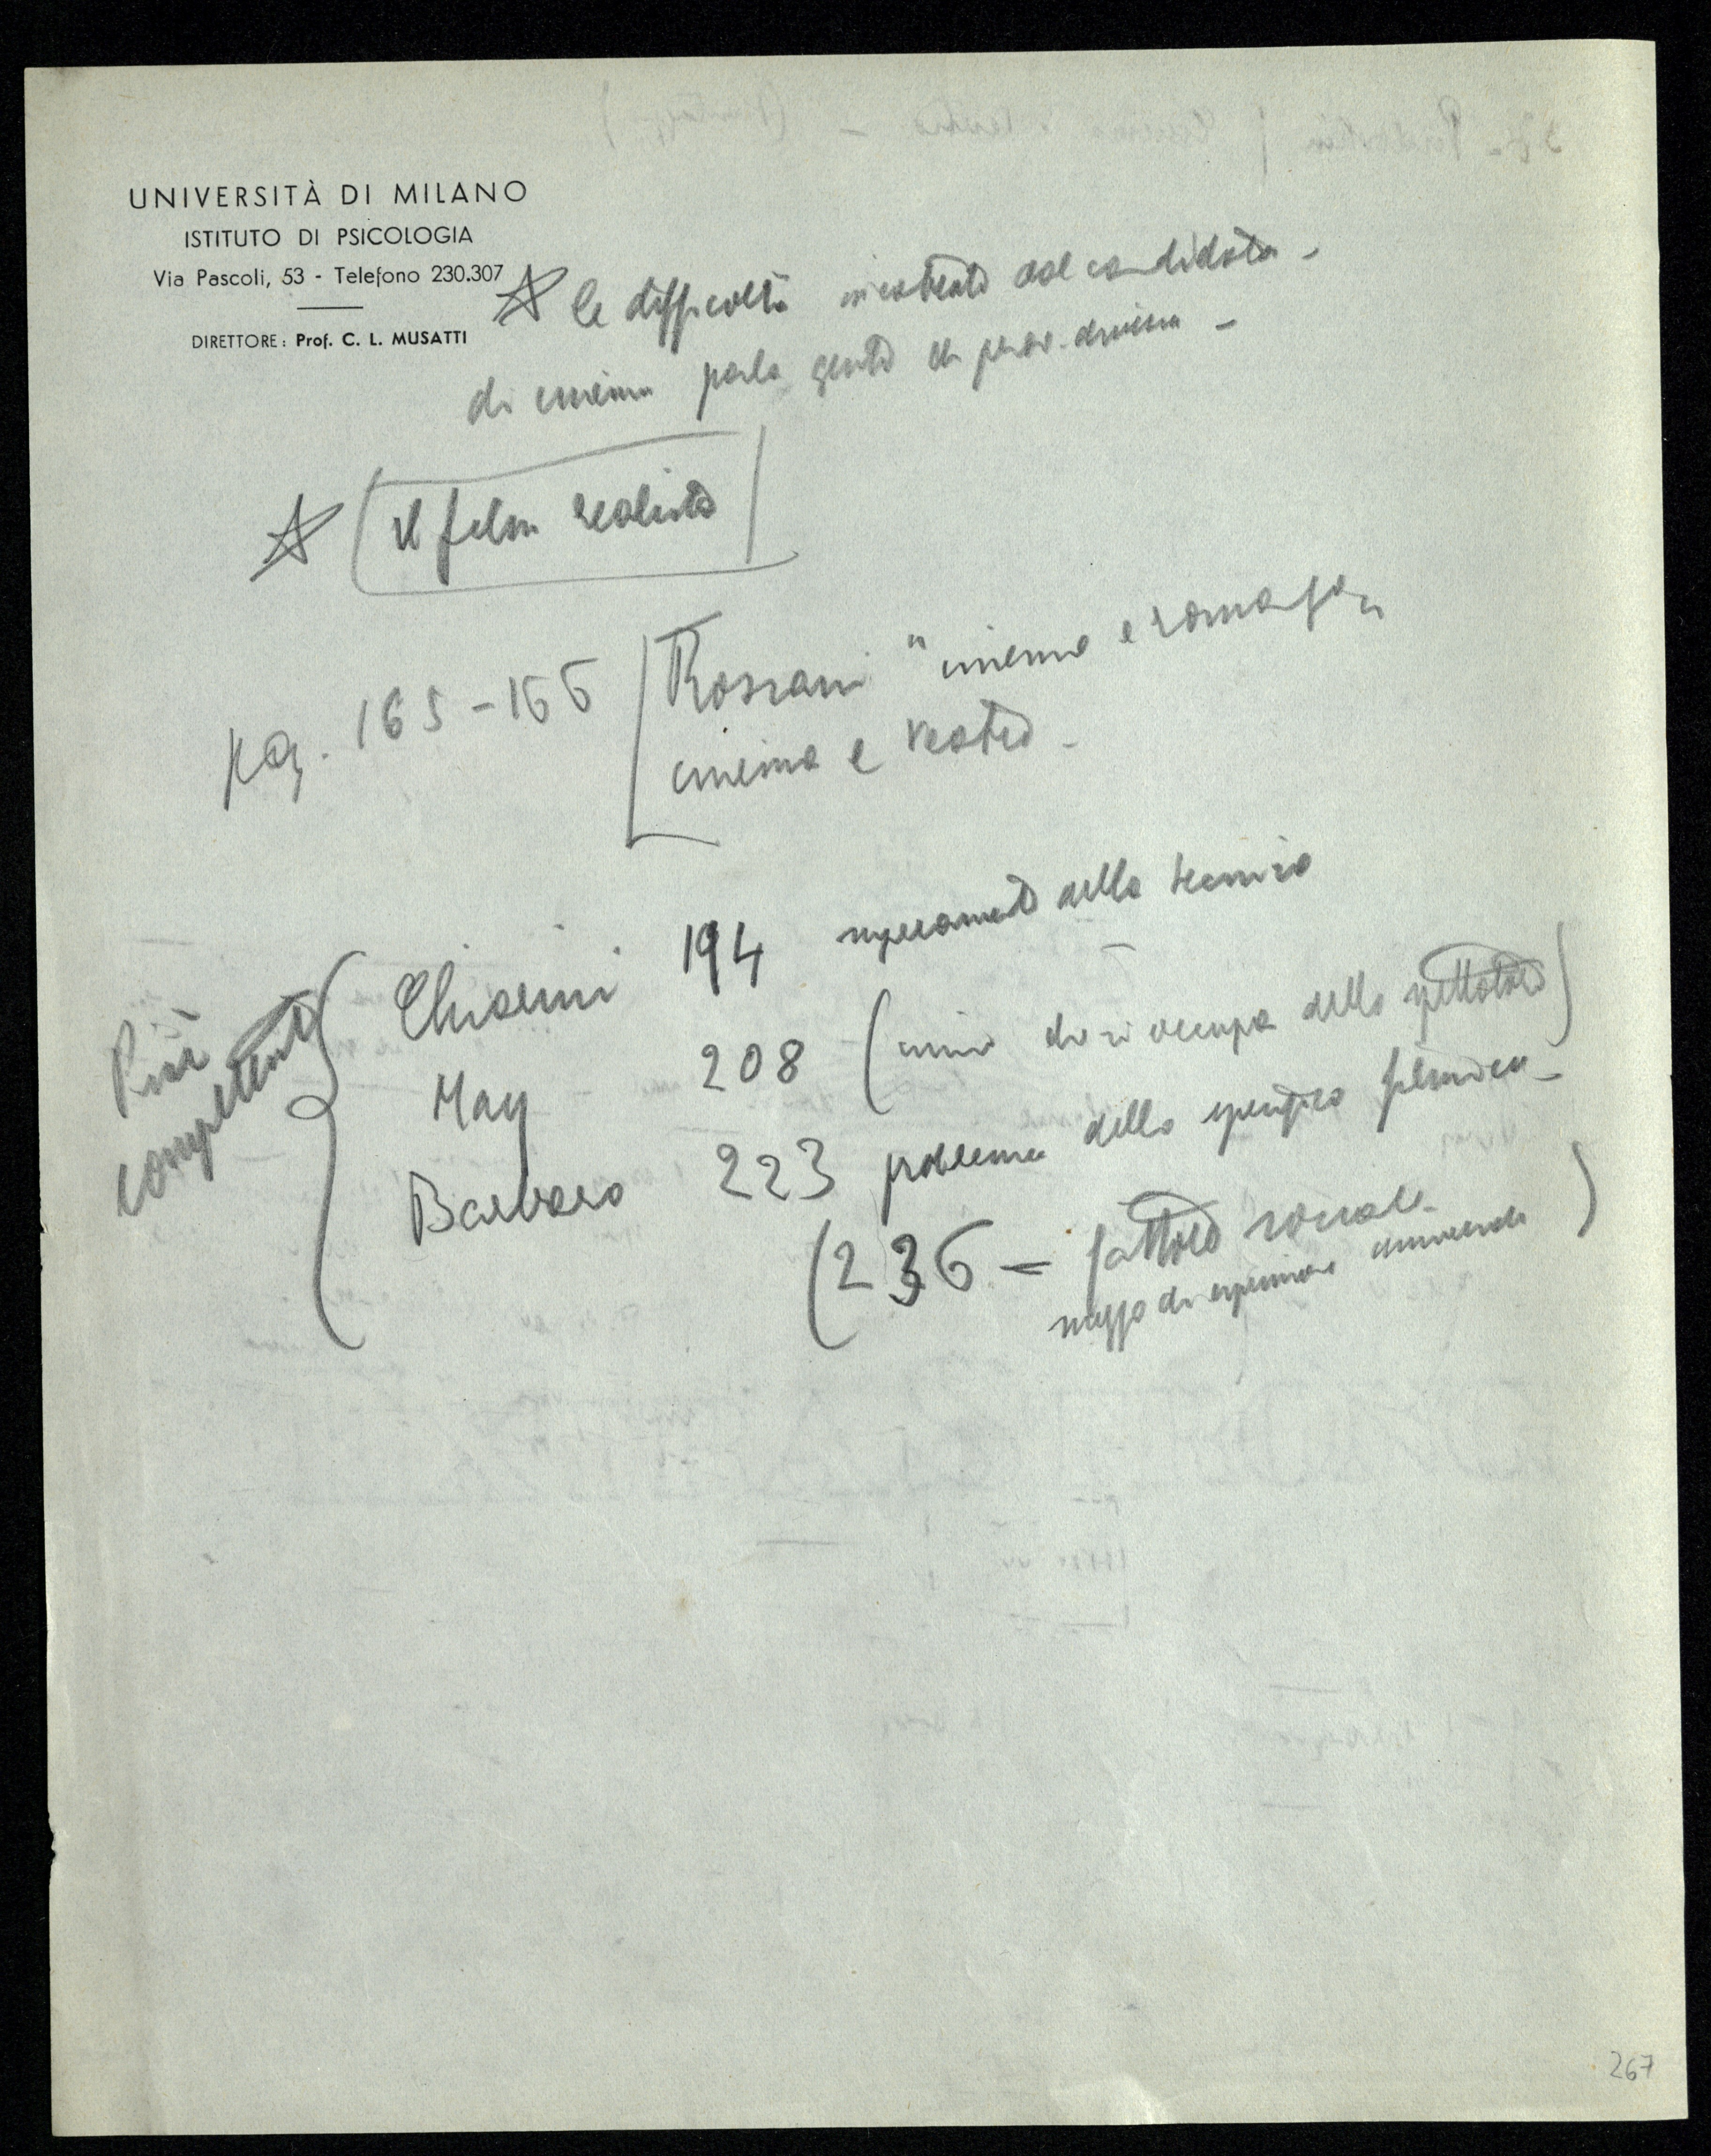 UNIVERSITÀ DI MILANO
ISTITUTO DI PSICOLOGIA
Via Pascoli, 53 - Telefono 230.307
DIRETTORE: Prof. C. L. MUSATTI
le difficoltà incontrate dal candidato -
di cinema parla gente di prov. diversa -
il film realista
pag. 165-166
Rossani "cinema e romanzo"
cinema e teatro -
Più competenti
Chiarini 194 superamento della tecnica
May 208 (unico che si occupa dello spettatore)
Barbaro 223 problema dello specifico filmico -
(236 - fattore sociale -
mezzo di espressione universale)
267